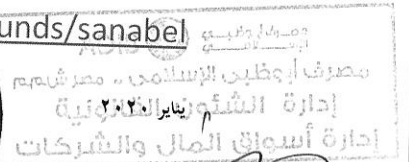 unds/sanabel
مصرف أبوظبي الإسلامي
مصرف أبوظبي الإسلامي .. مصر ش.م.م
إدارة الشئون القانونية
يناير ٢٠٢٠
إدارة أسواق المال والشركات